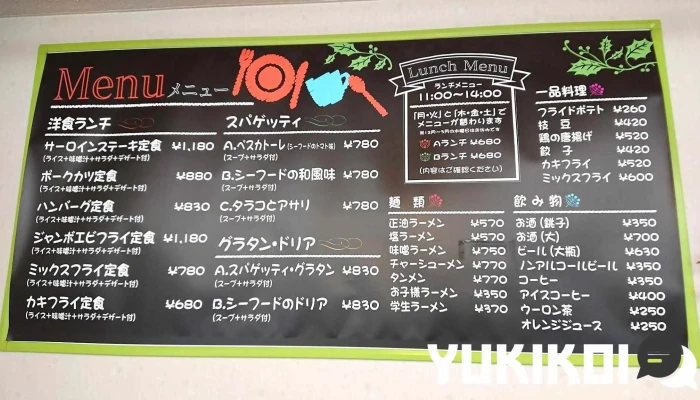 Menu メニュー
洋食ランチ
サーロインステーキ定食 ¥1,180
(ライス+味噌汁+サラダ+デザート付)
ポークカツ定食 ¥880
(ライス+味噌汁+サラダ+デザート付)
ハンバーグ定食 ¥830
(ライス+味噌汁+サラダ+デザート付)
ジャンボエビフライ定食 ¥1,180
(ライス+味噌汁+サラダ+デザート付)
ミックスフライ定食 ¥780
(ライス+味噌汁+サラダ+デザート付)
カキフライ定食 ¥680
(ライス+味噌汁+サラダ+デザート付)
スパゲッティ
A.ペスカトーレ(シーフードのトマト味) ¥780
(スープ+サラダ付)
B.シーフードの和風味 ¥780
(スープ+サラダ付)
C.タラコとアサリ ¥780
(スープ+サラダ付)
グラタン・ドリア
A.スパゲッティ・グラタン ¥830
(スープ+サラダ付)
B.シーフードのドリア ¥830
(スープ+サラダ付)
Lunch Menu
ランチメニュー
11:00~14:00
「月・火」と「木・金・土」で
メニューが替わります
Aランチ ¥680
Bランチ ¥680
(内容はご確認ください)
麺類
正油ラーメン ¥570
塩ラーメン ¥570
味噌ラーメン ¥750
チャーシューメン ¥770
タンメン ¥770
お子様ラーメン ¥350
学生ラーメン ¥370
一品料理
フライドポテト ¥260
枝豆 ¥420
鶏の唐揚げ ¥520
餃子 ¥420
カキフライ ¥520
ミックスフライ ¥600
飲み物
お酒(銚子) ¥350
お酒(大) ¥700
ビール(大瓶) ¥630
ノンアルコールビール ¥350
コーヒー ¥350
アイスコーヒー ¥400
ウーロン茶 ¥250
オレンジジュース ¥250
YUKIKOI